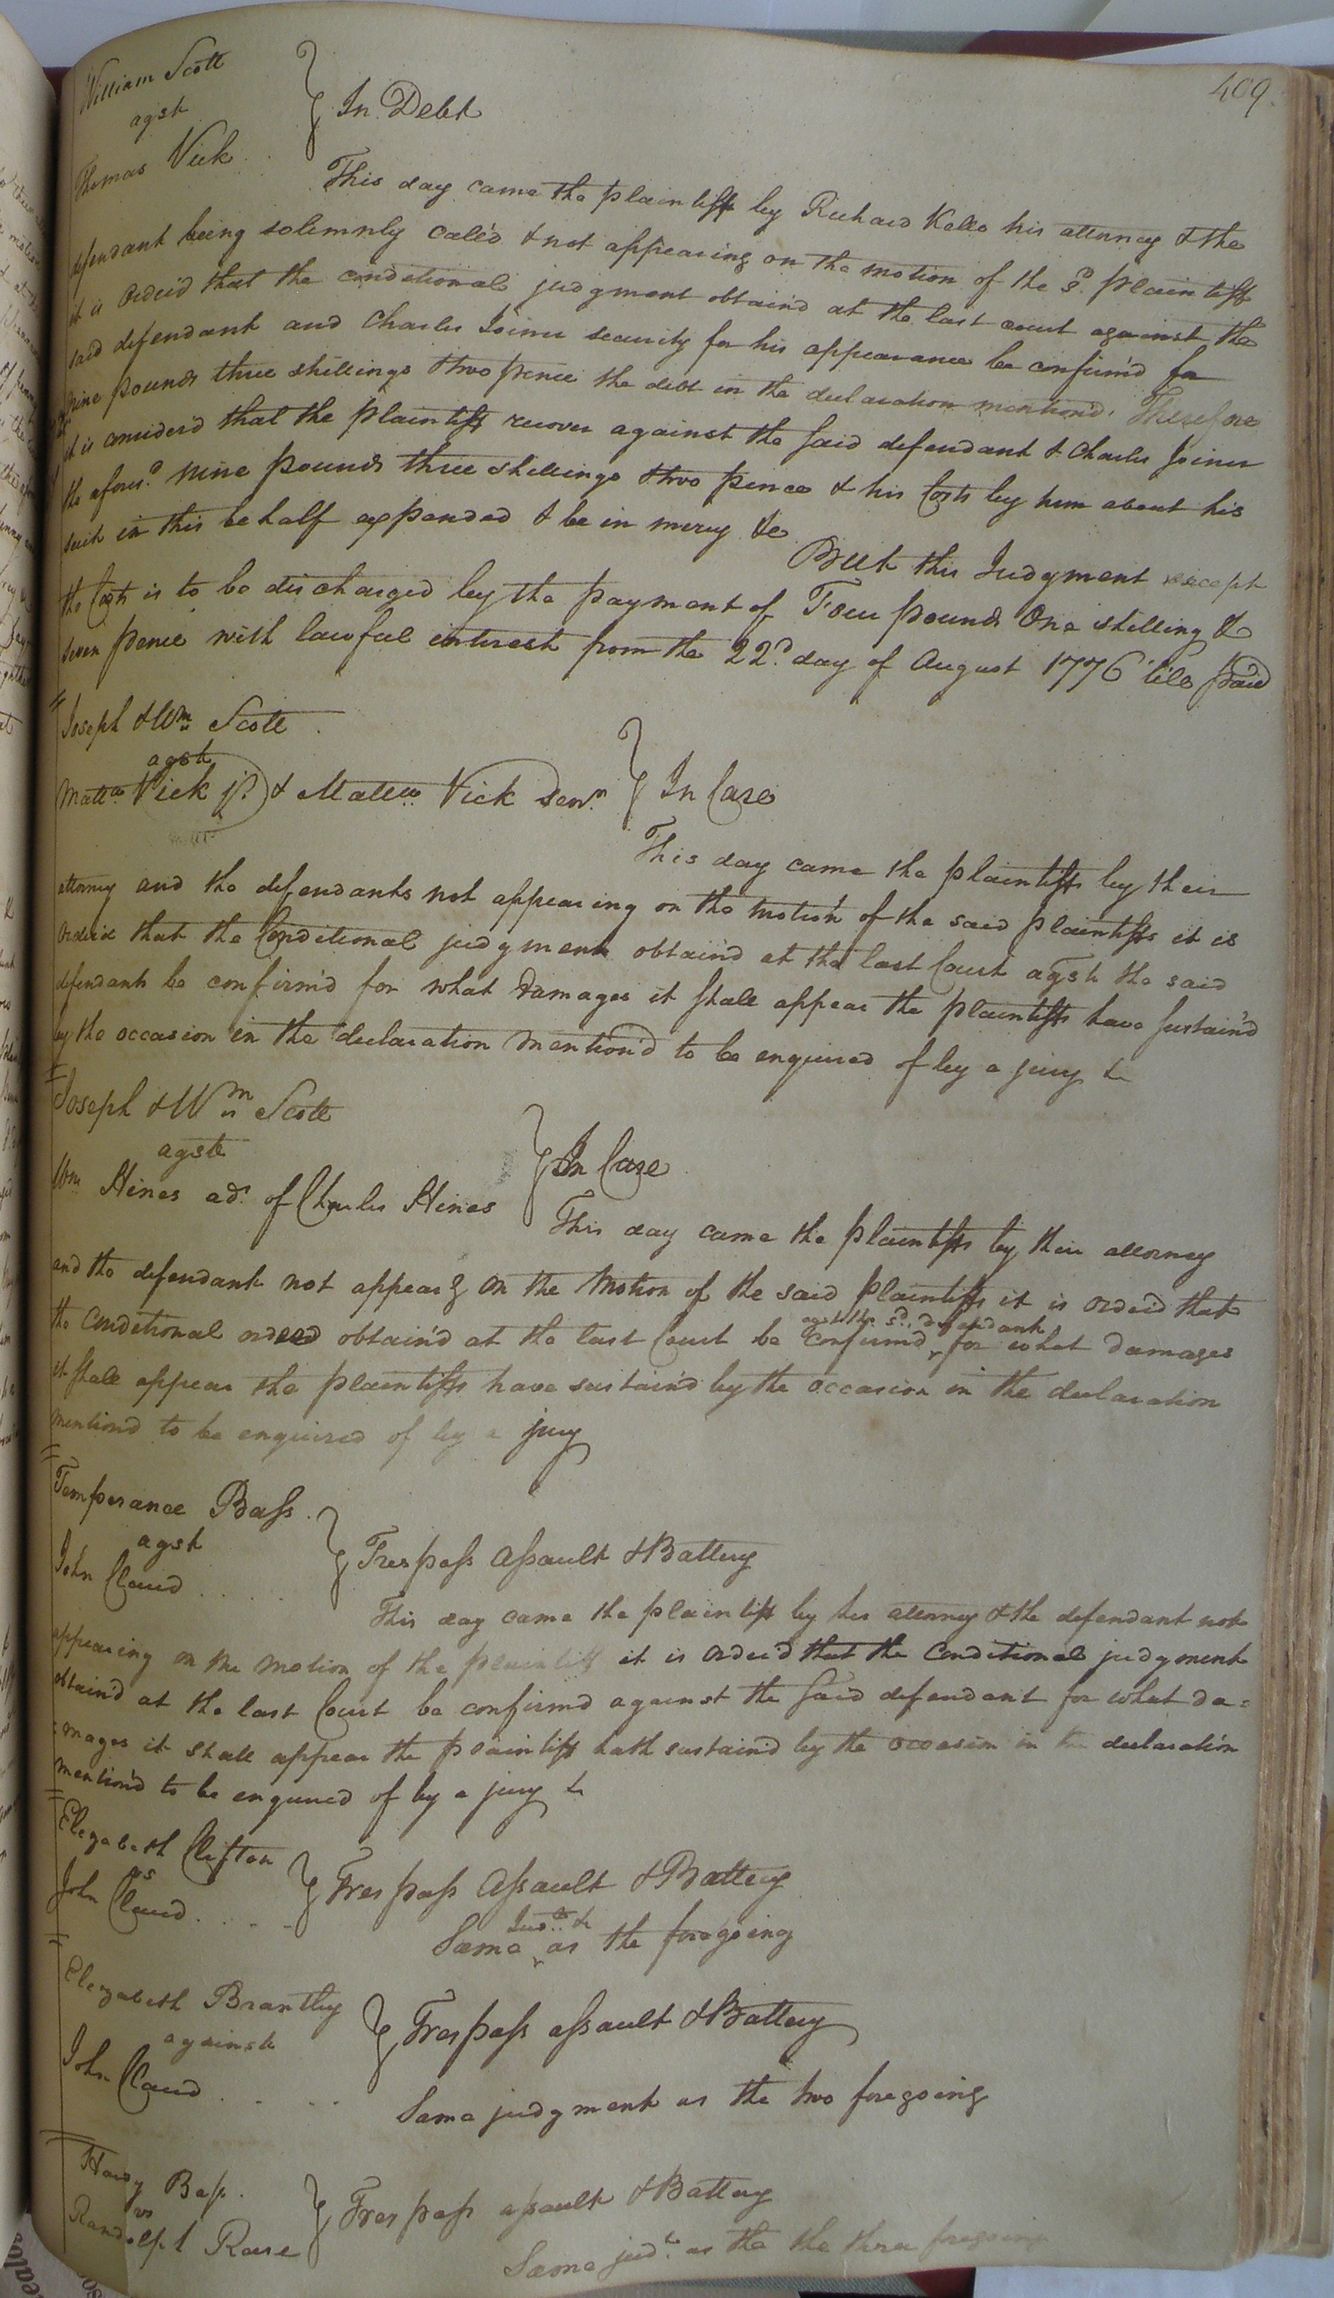 409.
William Scott
agst
Thomas Vick
In Debt
This day came the plaintiff by Richard Kello his attorney & the
defendant being solemnly call'd & not appearing on the motion of the sd. plaintiff
it is Order'd that the conditional judgment obtain'd at the last court against the
said defendant and Charles Joiner security for his appearance be confirm'd for
nine pounds three shillings & two pence the debt in the declaration mention'd. Therefore
it is consider'd that the plaintiff recover against the said defendant & Charles Joiner
the afores.d nine pounds three shillings & two pence & his Costs by him about his
suit in this behalf expended & be in mercy &c
But this Judgment except
the Costs is to be discharged by the payment of Four pounds One shilling &
seven pence with lawful interest from the 22d. day of August 1776 'till paid
Joseph & Wm Scott
agst
Matt.w Vick jr. & Matt.w Vick Senr.
In Case
This day came the plaintiffs by their
attorney and the defendants not appearing on the motion of the said plaintiffs it is
Order'd that the Conditional judgment obtain'd at the last Court agst the said
defendants be confirm'd for what Damages it shall appear the plaintiffs have sustain'd
by the occasion in the declaration mention'd to be enquired of by a jury &
Joseph & Wm Scott
agst
Wm. Hines adr. of Charles Hines
In Case
This day came the plaintiffs by their attorney
and the defendant not appearg on the Motion of the said plaintiffs it is order'd that
the Conditional order obtain'd at the last Court be confirm'd agst the sd. defendant for what Damages
it shall appear the plaintiffs have sustain'd by the occasion in the declaration
mention'd to be enquired of by a jury
Temperance Bass
agst
John Claud
Trespass Assault & Battery
This day came the plaintiff by her attorney & the defendant not
appearing on the motion of the plaintiff it is order'd that the Conditional judgment
obtain'd at the last Court be confirm'd against the said defendant for what da=
=mages it shall appear the plaintiff hath sustain'd by the occasion in the declaration
mention'd to be enquired of by a jury &
Elezabeth Clifton
vs
John Claud
Trespass Assault & Battery
Same Judt. & as the foregoing
Elezabeth Brantley
against
John Claud
Trespass assault & Battery
Same judgment as the two foregoing
Hardy Bass
vs
Randolph Rase
Trespass assault & Battery
Same judt. as the the three foregoing